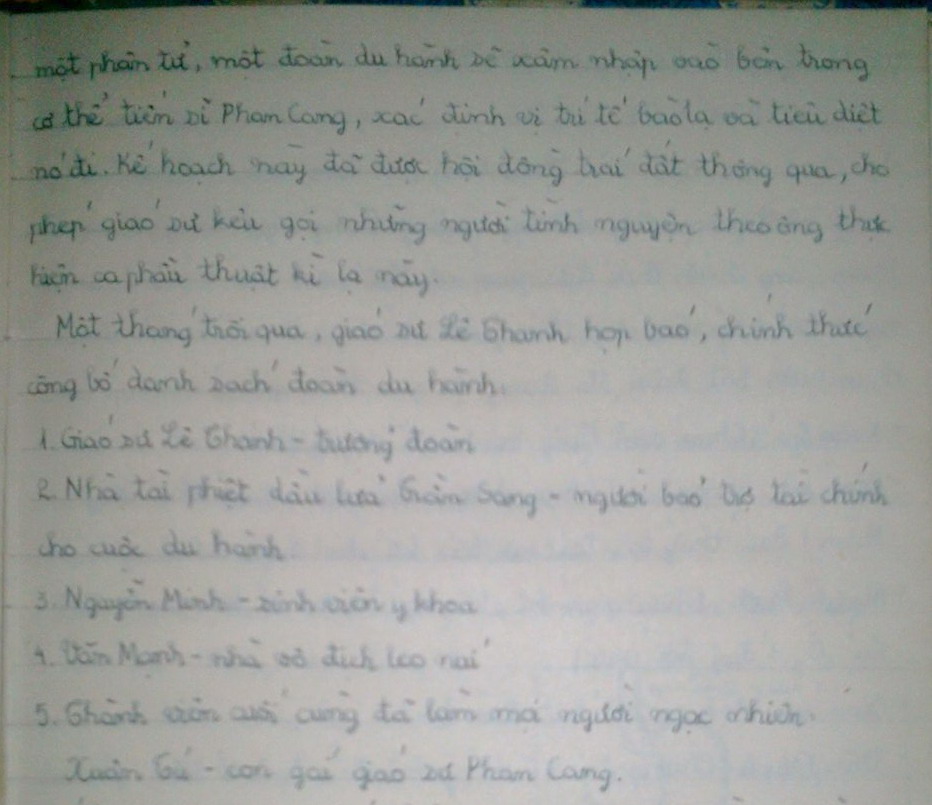 một phân tử, một đoàn du hành sẽ xâm nhập vào bên trong
cơ thể tiến sĩ Phan Cang, xác định vị trí tế bào lạ và tiêu diệt
nó đi. Kế hoạch này đã được hội đồng trái đất thông qua, cho
phép giáo sư kêu gọi những người tình nguyện theo ông thực
hiện ca phẫu thuật kì lạ này.
Một tháng trôi qua, giáo sư Lê Thanh họp báo, chính thức
công bố danh sách đoàn du hành.
1. Giáo sư Lê Thanh - trưởng đoàn
2. Nhà tài phiệt dầu lửa Trần Sang - người bảo trợ tài chính
cho cuộc du hành
3. Nguyễn Minh - sinh viên y khoa
4. Văn Mạnh - nhà vô địch leo núi
5. Thành viên cuối cùng đã làm mọi người ngạc nhiên.
Xuân Tú - con gái giáo sư Phan Cang.